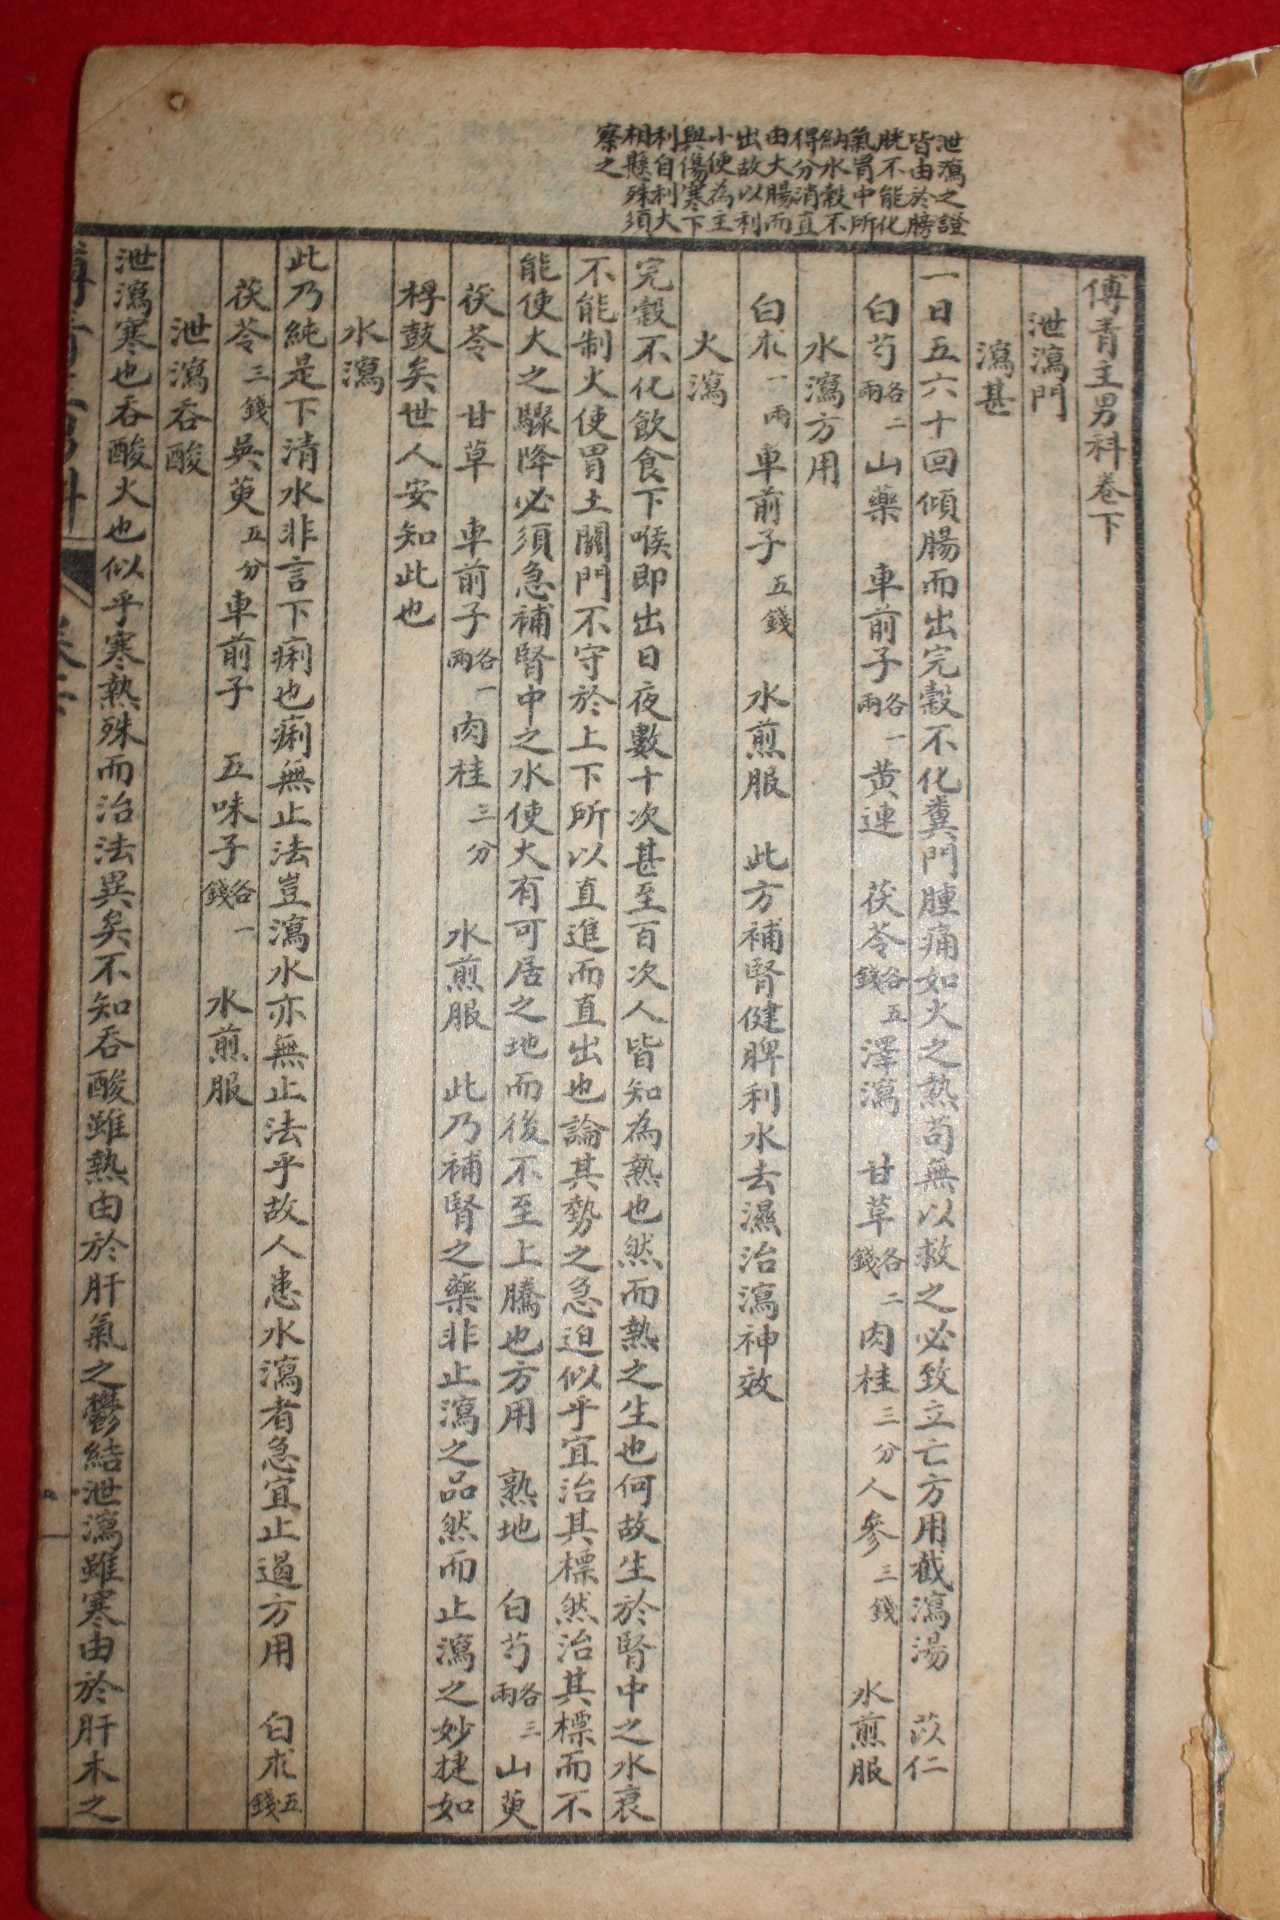 泄瀉之證
皆由於膀
胱不能化
氣胃中所
納水穀不
得分消直
由大腸而
出故以利
小便為主
與傷寒下
利自利大
相懸殊須
察之
傅青主男科卷下
泄瀉門
瀉甚
一日五六十回傾腸而出完穀不化糞門腫痛如火之熱苟無以救之必致立亡方用截瀉湯 苡仁
白芍各二兩 山藥 車前子各一兩 黄連 茯苓各五錢 澤瀉 甘草各二錢 肉桂三分 人參三錢 水煎服
水瀉方用
白朮一兩 車前子五錢 水煎服 此方補腎健脾利水去濕治瀉神效
火瀉
完穀不化飲食下喉即出日夜數十次甚至百次人皆知為熱也然而熱之生也何故生於腎中之水衰
不能制火使胃土關門不守於上下所以直進而直出也論其勢之急迫似乎宜治其標然治其標而不
能使火之驟降必須急補腎中之水使火有可居之地而後不至上騰也方用 熟地 白芍各三兩 山萸
茯苓 甘草 車前子各一兩 肉桂三分 水煎服 此乃補腎之藥非止瀉之品然而止瀉之妙捷如
桴鼓矣世人安知此也
水瀉
此乃純是下清水非言下痢也痢無止法豈瀉水亦無止法乎故人患水瀉者急宜止遏方用 白朮五錢
茯苓三錢 吳萸五分 車前子 五味子各一錢 水煎服
泄瀉吞酸
泄瀉寒也吞酸火也似乎寒熱殊而治法異矣不知吞酸雖熱由於肝氣之鬱結泄瀉雖寒由於肝木之
傅青主男科 卷下 一